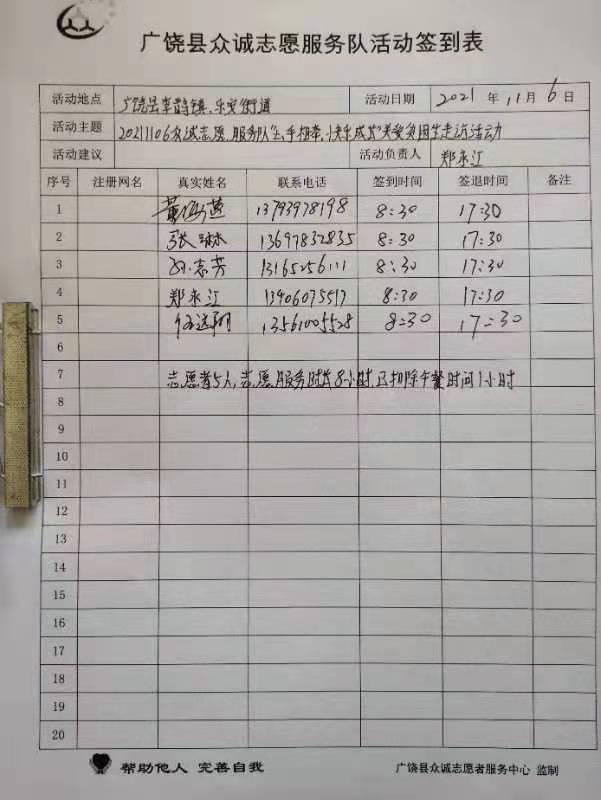 广饶县众诚志愿服务队活动签到表
活动地点 广饶县李鹊镇、乐安街道 活动日期 2021 年 11 月 6 日
活动主题 20211106众诚志愿服务队"手相牵、快乐成长"关爱贫困生走访活动
活动建议 活动负责人 郑永江
序号 注册网名 真实姓名 联系电话 签到时间 签退时间 备注
1 13793978198 8:30 17:30
2 张琳 13697832835 8:30 17:30
3 孙志芳 13165256111 8:30 17:30
4 郑永江 13906075517 8:30 17:30
5 13561005528 8:30 17:30
6
7 志愿者5人,志愿服务时长8小时,已扣除午餐时间1小时
8
9
10
11
12
13
14
15
16
17
18
19
20
帮助他人 完善自我 广饶县众诚志愿者服务中心 监制